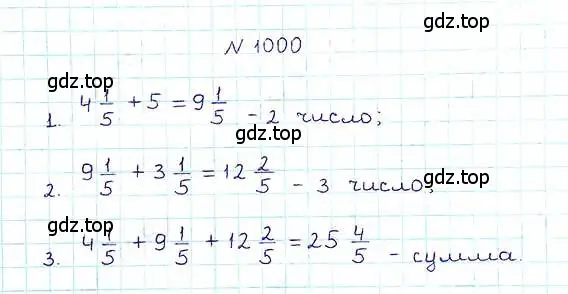 gdz.top
N 1000
gdz.top gdz.top
1. 4 1/5 + 5 = 9 1/5 - 2 число;
gdz.top
2. 9 1/5 + 3 1/5 = 12 2/5 - 3 число; gdz.top
gdz.top
3. 4 1/5 + 9 1/5 + 12 2/5 = 25 4/5 - сумма.
gdz.top